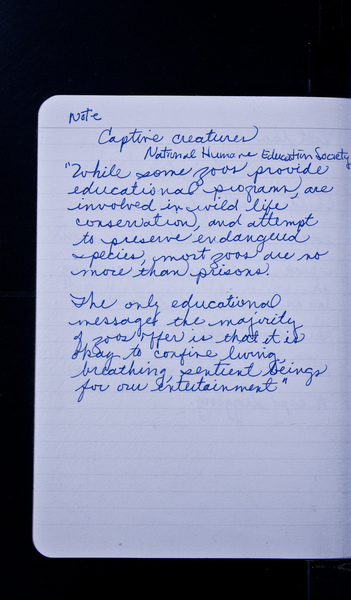 Note
Captive creatures
National Humane Education Society
"While some zoos provide
educational programs, are
involved in wild life
conservation, and attempt
to preserve endangered
species, most zoos are no
more than prisons.
The only educational
messages the majority
of zoos offer is that it is
okay to confine living,
breathing, sentient beings
for our entertainment"